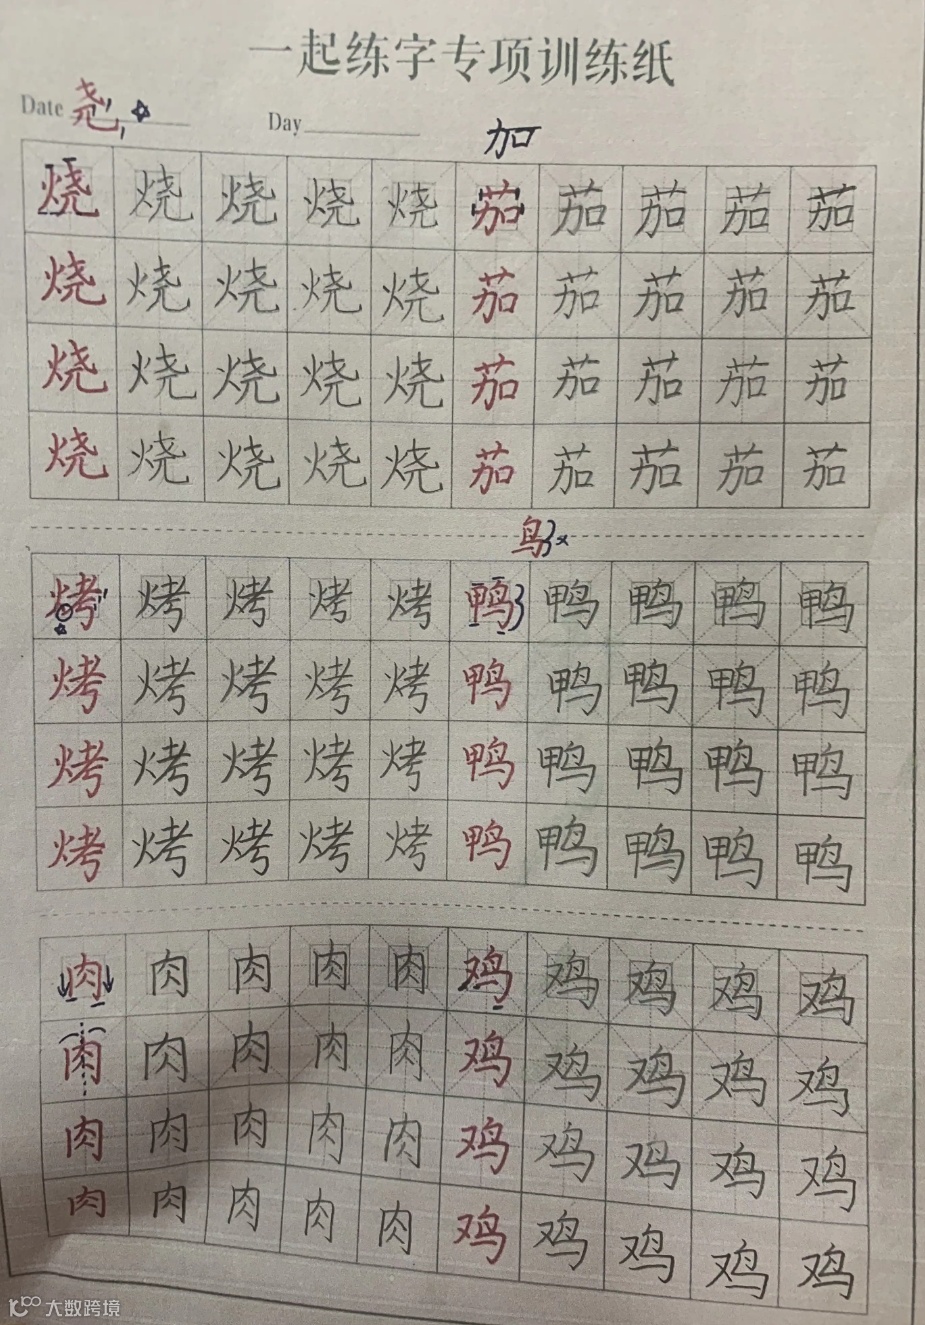 一起练字专项训练纸
Date 尧 Day
加
烧 烧 烧 烧 烧 茄 茄 茄 茄 茄
烧 烧 烧 烧 烧 茄 茄 茄 茄 茄
烧 烧 烧 烧 烧 茄 茄 茄 茄 茄
烧 烧 烧 烧 烧 茄 茄 茄 茄 茄
鸟
烤 烤 烤 烤 烤 鸭 鸭 鸭 鸭 鸭
烤 烤 烤 烤 烤 鸭 鸭 鸭 鸭 鸭
烤 烤 烤 烤 烤 鸭 鸭 鸭 鸭 鸭
烤 烤 烤 烤 烤 鸭 鸭 鸭 鸭 鸭
肉 肉 肉 肉 肉 鸡 鸡 鸡 鸡 鸡
肉 肉 肉 肉 肉 鸡 鸡 鸡 鸡 鸡
肉 肉 肉 肉 肉 鸡 鸡 鸡 鸡 鸡
肉 肉 肉 肉 肉 鸡 鸡 鸡 鸡 鸡
大数跨境